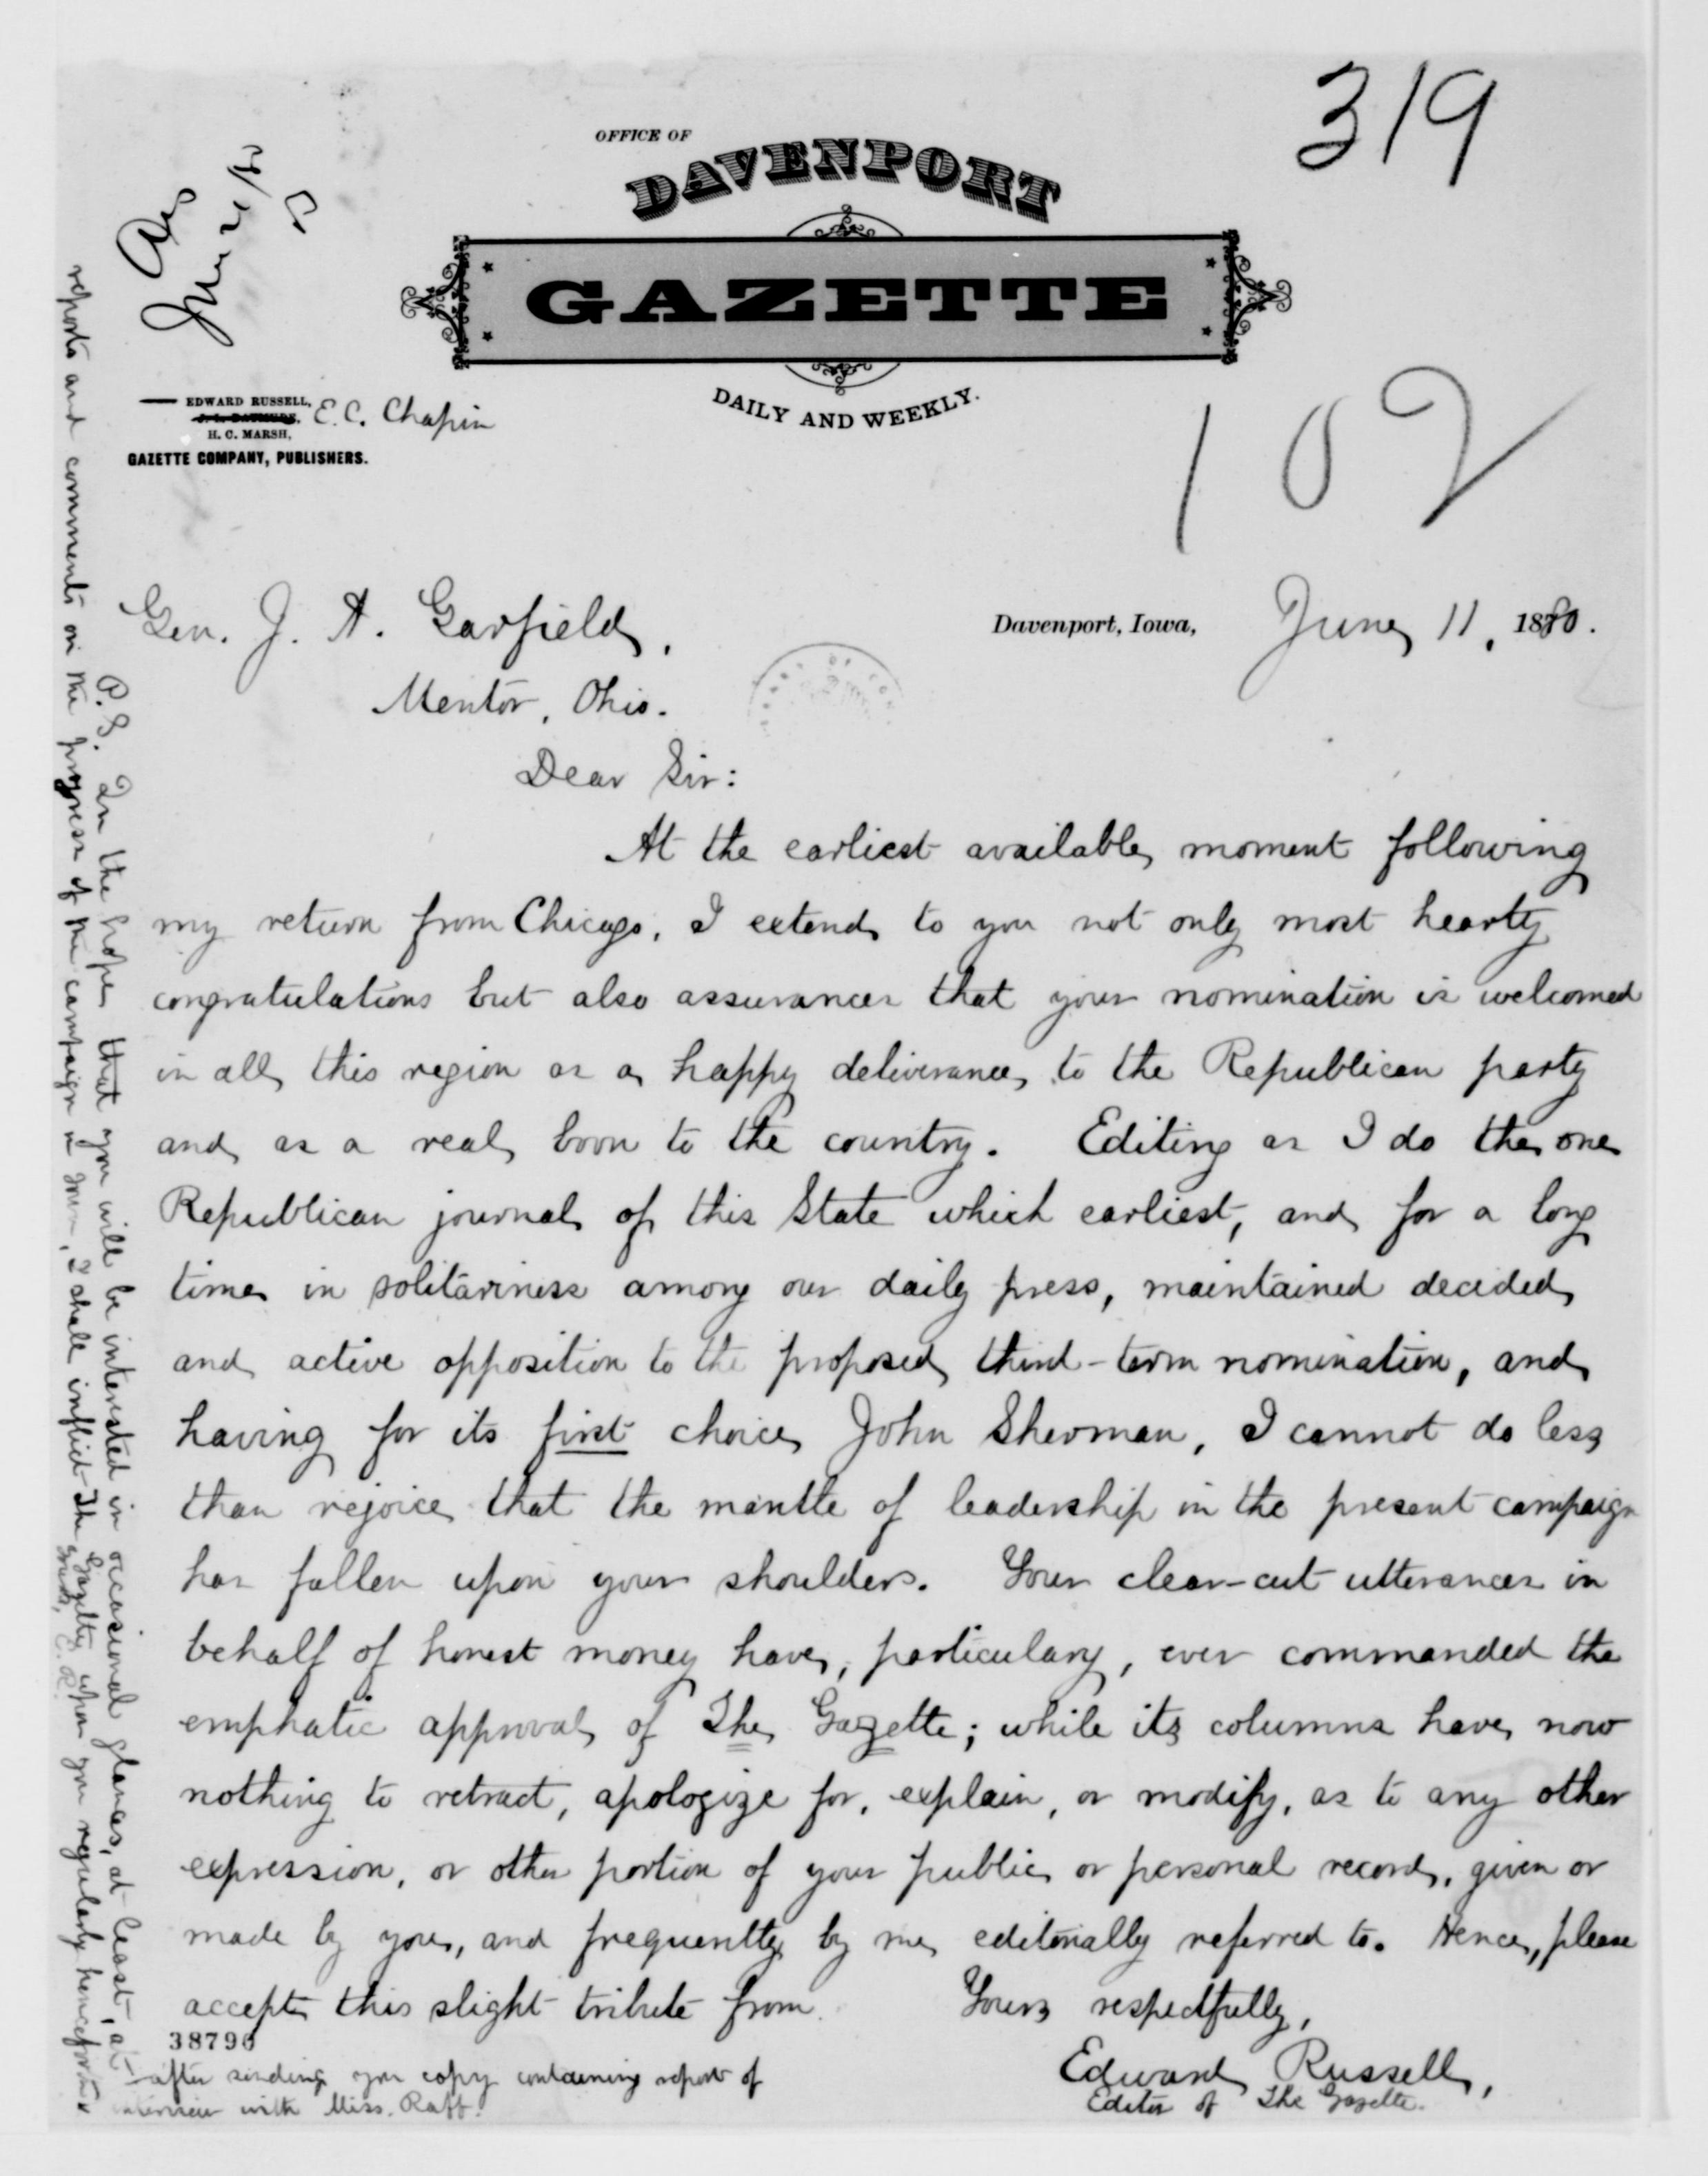 319
OFFICE OF
DAVENPORT
GAZETTE
DAILY AND WEEKLY.
Ans
June 21/80
EDWARD RUSSELL,
E. C. Chapin
H. C. MARSH,
GAZETTE COMPANY, PUBLISHERS.
102
Davenport, Iowa, June 11, 1880.
Gen. J. A. Garfield,
Mentor, Ohio.
Dear Sir:
At the earliest available moment following
my return from Chicago, I extend to you not only most hearty
congratulations but also assurances that your nomination is welcomed
in all this region as a happy deliverance to the Republican party
and as a real boon to the country. Editing as I do the one
Republican journal of this State which earliest, and for a long
time in solitariness among our daily press, maintained decided
and active opposition to the proposed third-term nomination, and
having for its first choice John Sherman, I cannot do less
than rejoice that the mantle of leadership in the present campaign
has fallen upon your shoulders. Your clear-cut utterances in
behalf of honest money have, particulary, ever commanded the
emphatic approval of The Gazette; while its columns have now
nothing to retract, apologize for, explain, or modify, as to any other
expression, or other portion of your public or personal record, given or
made by you, and frequently by me editorially referred to. Hence, please
accept this slight tribute from Yours respectfully,
Edward Russell,
Editor of The Gazette.
38796
P.S. In the hope that you will be interested in occasional glances, at least, at
reports and comments on the progress of the campaign in Iowa, I shall inflict The Gazette upon you regularly henceforth
E. R.
after sending you copy containing report of
interview with Miss. Raff.